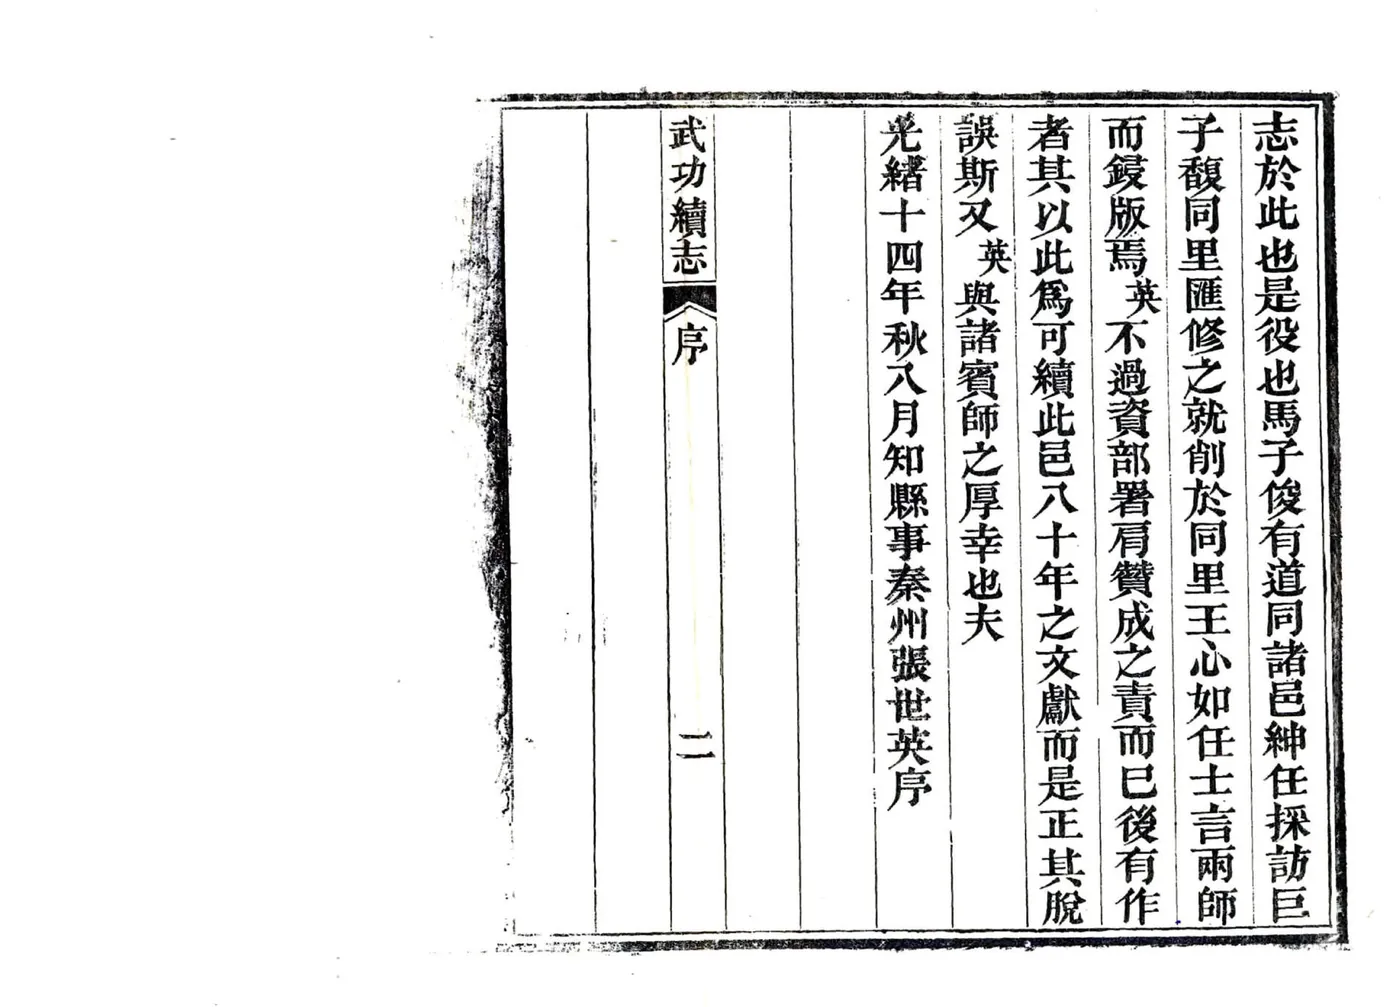 志於此也是役也馬子俊有道同諸邑紳任採訪巨
子馥同里匯修之就削於同里王心如任士言兩師
而鋟版焉英不過資部署肩贊成之責而已後有作
者其以此爲可續此邑八十年之文獻而是正其脫
誤斯又英與諸賓師之厚幸也夫
光緒十四年秋八月知縣事秦州張世英序
武功續志 序 二